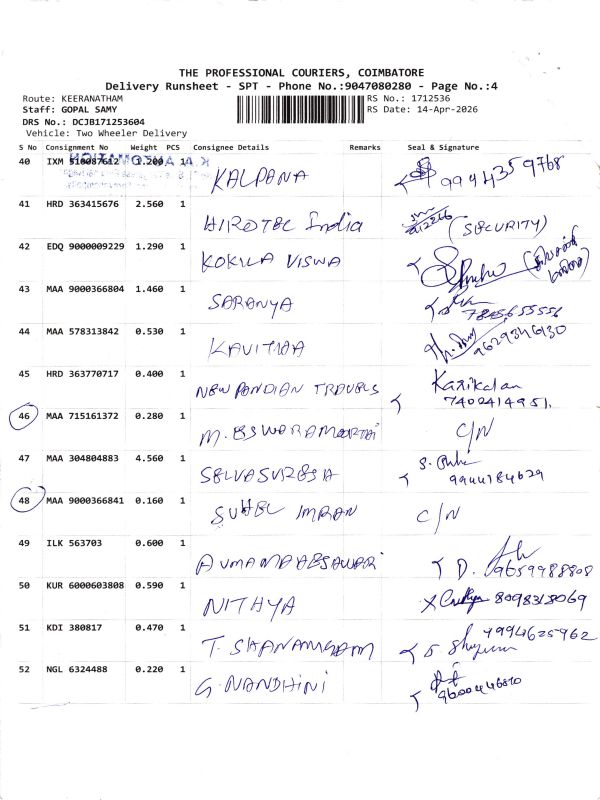 THE PROFESSIONAL COURIERS, COIMBATORE
Delivery Runsheet - SPT - Phone No.:9047080280 - Page No.:4
Route: KEERANATHAM
RS No.: 1712536
Staff: GOPAL SAMY
RS Date: 14-Apr-2026
DRS No.: DCJB171253604
Vehicle: Two Wheeler Delivery
S No Consignment No Weight PCS Consignee Details Remarks Seal & Signature
40 IXM 510087612 1.200 1 KALPANA 9944359768
41 HRD 363415676 2.560 1 HIROTEC India (SECURITY)
42 EDQ 9000009229 1.290 1 KOKILA VISWA
43 MAA 9000366804 1.460 1 SARANYA 7845655556
44 MAA 578313842 0.530 1 KAVITHA 9629346130
45 HRD 363770717 0.400 1 NEW PANDIAN Karikalan
7402414951.
46 MAA 715161372 0.280 1 M. ESWARAMOORTHI C/N
47 MAA 304804883 4.560 1 9944184629
48 MAA 9000366841 0.160 1 SUHEL IMRAN C/N
49 ILK 563703 0.600 1 D. 9659988808
50 KUR 6000603808 0.590 1 NITHYA 8098318069
51 KDI 380817 0.470 1 T. 9994625962
52 NGL 6324488 0.220 1 G. NANDHINI